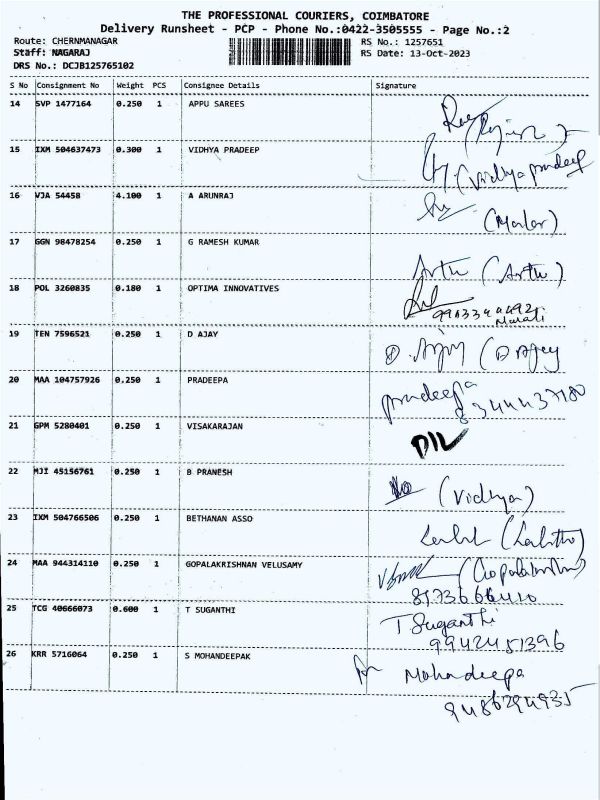 THE PROFESSIONAL COURIERS, COIMBATORE
Delivery Runsheet - PCP - Phone No.:0422-3505555 - Page No.:2
Route: CHERNMANAGAR RS No.: 1257651
Staff: NAGARAJ RS Date: 13-Oct-2023
DRS No.: DCJB125765102
S No Consignment No Weight PCS Consignee Details Signature
14 SVP 1477164 0.250 1 APPU SAREES
15 IXM 504637473 0.300 1 VIDHYA PRADEEP (Vidhya pradeep
16 VJA 54458 4.100 1 A ARUNRAJ (Malar)
17 GGN 98478254 0.250 1 G RAMESH KUMAR
18 POL 3260835 0.180 1 OPTIMA INNOVATIVES
Murali
19 TEN 7596521 0.250 1 D AJAY D. Ajay (D Ajay
20 MAA 104757926 0.250 1 PRADEEPA pradeepa
21 GPM 5280401 0.250 1 VISAKARAJAN D/L
22 MJI 45156761 0.250 1 B PRANESH (Vidhya)
23 IXM 504766506 0.250 1 BETHANAN ASSO
24 MAA 944314110 0.250 1 GOPALAKRISHNAN VELUSAMY
25 TCG 40666073 0.600 1 T SUGANTHI T Suganthi
9942451396
26 KRR 5716064 0.250 1 S MOHANDEEPAK Mohandeepa
9486294935